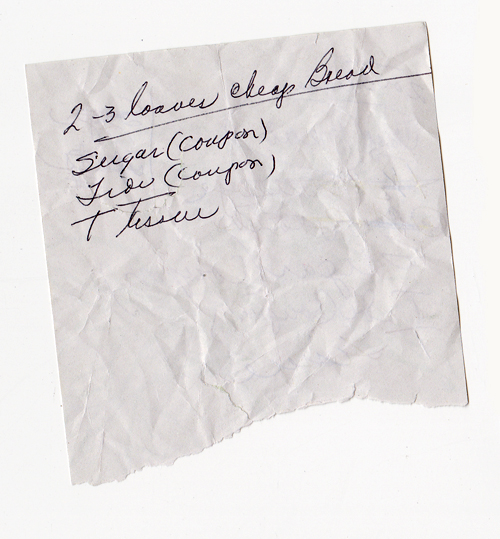 2-3 loaves cheap Bread
Sugar (coupon)
Tide (coupon)
T tissue